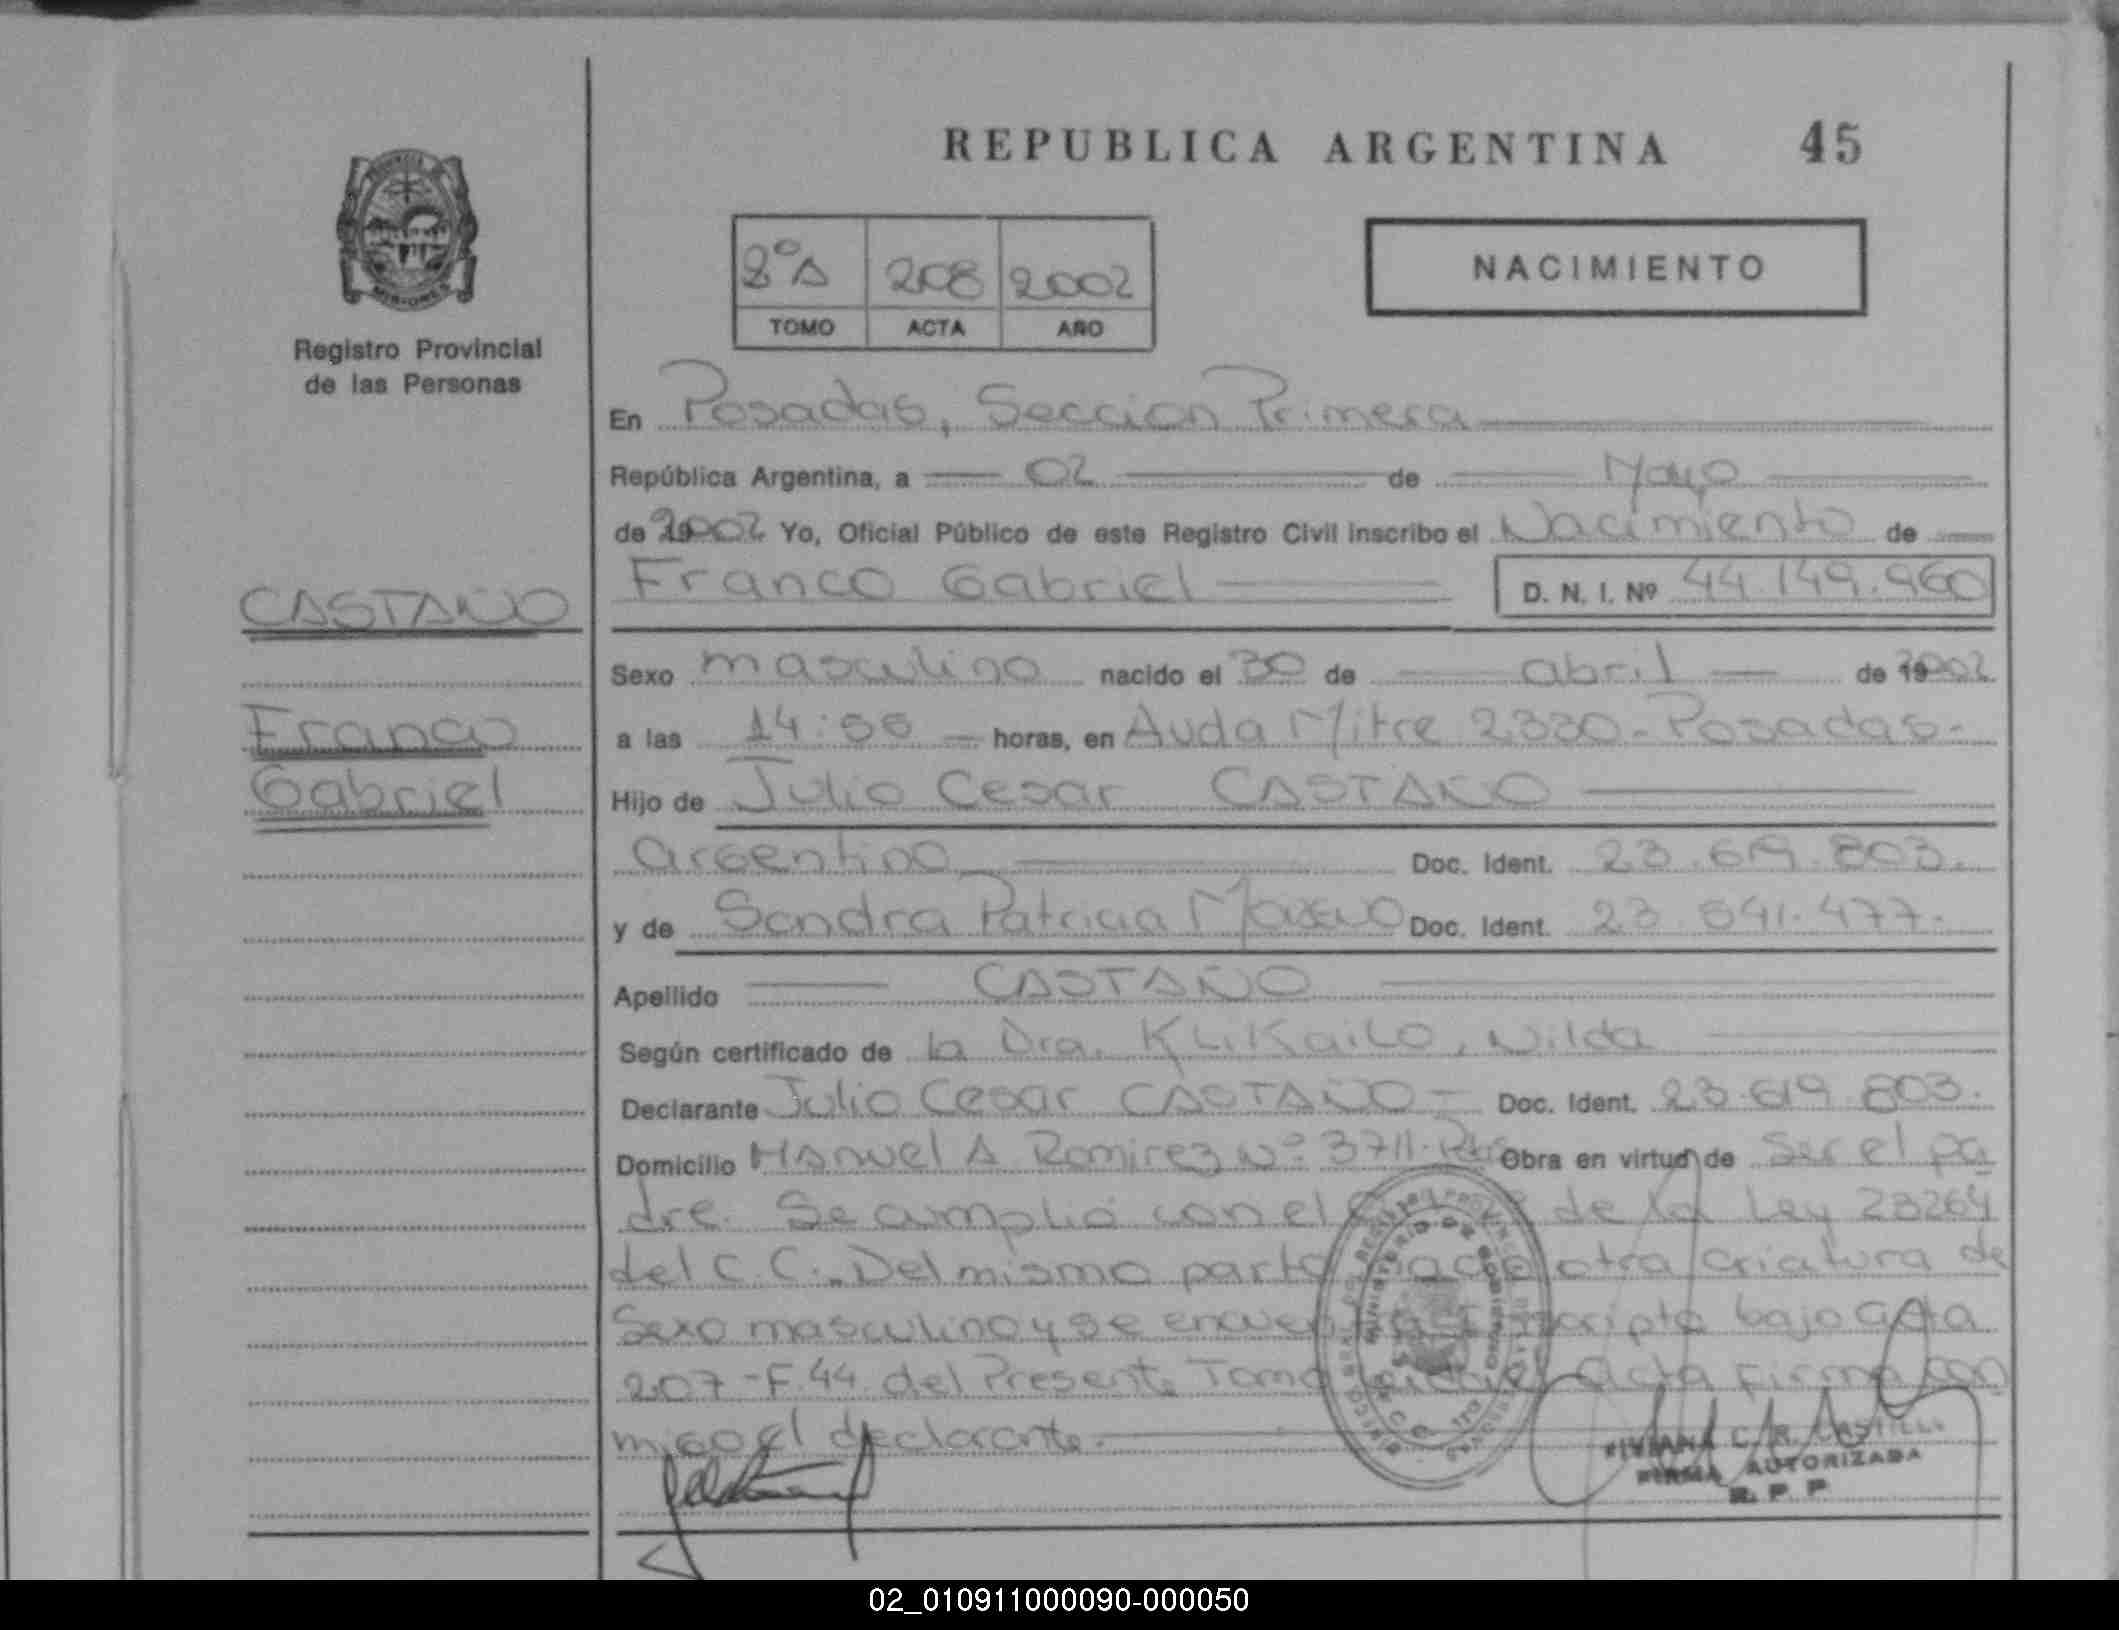 REPUBLICA ARGENTINA 45
2º A 208 2002
TOMO ACTA AÑO
NACIMIENTO
MISIONES
Registro Provincial
de las Personas
En Posadas, Sección Primera
República Argentina, a 02 de Mayo
de 2002 Yo, Oficial Público de este Registro Civil inscribo el Nacimiento de
CASTAÑO
Franco Gabriel D. N. I. Nº 44.149.960
Sexo masculino nacido el 30 de abril de 2002
Franco
a las 14: horas, en Avda Mitre 2330 - Posadas -
Gabriel
Hijo de Julio Cesar CASTAÑO
argentino Doc. Ident. 23.619.803.
y de Sandra Patricia Doc. Ident. 23.541.477.
Apellido CASTAÑO
Según certificado de la Dra. KLIKAILO, Nilda
Declarante Julio Cesar CASTAÑO - Doc. Ident. 23.619.803.
Domicilio Manuel A. Ramirez Nº 3711. Obra en virtud de Ser el pa
dre. Se cumplió con el de la Ley 23264
del C.C. Del mismo parto nació otra criatura de
Sexo masculino y se encuentra inscripta bajo acta
207 - F. 44 del Presente Tomo acta Firma con
migo el declarante.
VIVIANA C. R. CASTILLO
FIRMA AUTORIZADA
R. P. P.
02_010911000090-000050